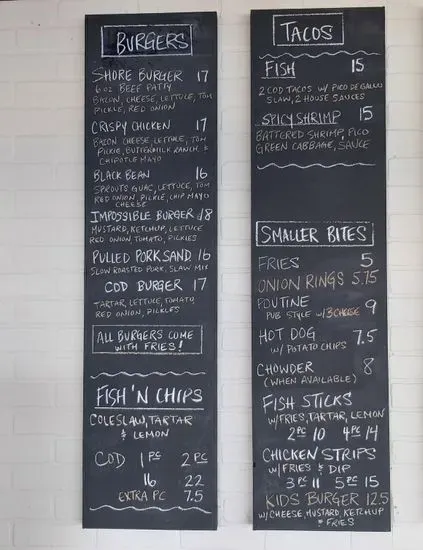 BURGERS
SHORE BURGER 17
6 OZ BEEF PATTY
BACON, CHEESE, LETTUCE, TOM
PICKLE, RED ONION
CRISPY CHICKEN 17
BACON CHEESE LETTUCE, TOM
PICKLE, BUTTERMILK RANCH &
CHIPOTLE MAYO
BLACK BEAN 16
SPROUTS GUAC, LETTUCE, TOM
RED ONION, PICKLE, CHIP MAYO
CHEESE
IMPOSSIBLE BURGER 18
MUSTARD, KETCHUP, LETTUCE
RED ONION TOMATO, PICKLES
PULLED PORK SAND 16
SLOW ROASTED PORK, SLAW MIX
COD BURGER 17
TARTAR, LETTUCE, TOMATO,
RED ONION, PICKLES
ALL BURGERS COME
WITH FRIES!
FISH 'N CHIPS
COLESLAW, TARTAR
& LEMON
COD 1 PC 2 PC
16 22
EXTRA PC 7.5
TACOS
FISH 15
2 COD TACOS W/ PICO DE GALLO
SLAW, 2 HOUSE SAUCES
SPICY SHRIMP 15
BATTERED SHRIMP, PICO
GREEN CABBAGE, SAUCE
SMALLER BITES
FRIES 5
ONION RINGS 5.75
POUTINE 9
PUB STYLE W/ 3 CHEESE
HOT DOG 7.5
W/ POTATO CHIPS
CHOWDER 8
(WHEN AVAILABLE)
FISH STICKS
W/ FRIES, TARTAR, LEMON
2 PC 10 4 PC 14
CHICKEN STRIPS
W/ FRIES & DIP
3 PC 11 5 PC 15
KIDS BURGER 12.5
W/ CHEESE, MUSTARD, KETCHUP
& FRIES